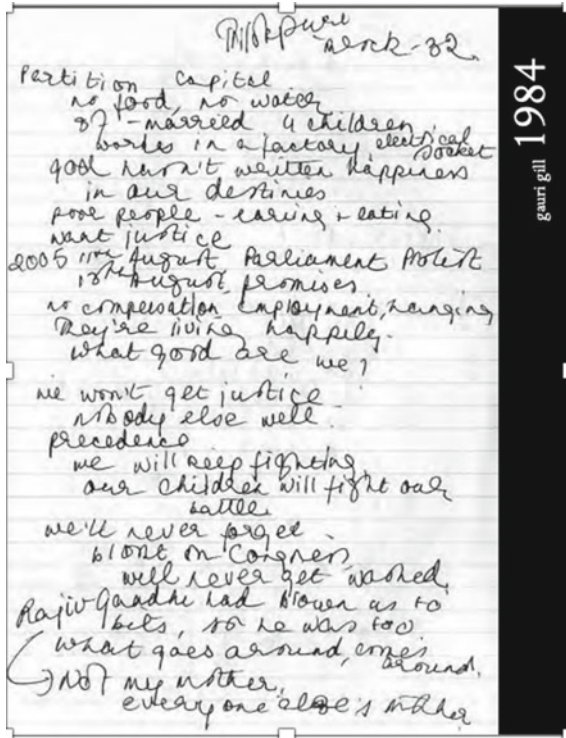 Trilokpuri
Block-32.
Partition capital
no food, no water
87 - married 4 children
works in a factory electrical
socket
god hasn't written happiness
in our destinies
poor people - earning + eating.
want justice
2005 11th August Parliament Protest
18th August, promises
no compensation employment, hanging
They're living happily.
what good are we?
we won't get justice
nobody else will.
precedence
we will keep fighting
our children will fight our
battle.
we'll never forget.
blot on Congress
will never get washed.
Rajiv Gandhi had blown us to
bits, so he was too
what goes around, comes
around.
Not my mother,
everyone else's mother
gauri gill 1984